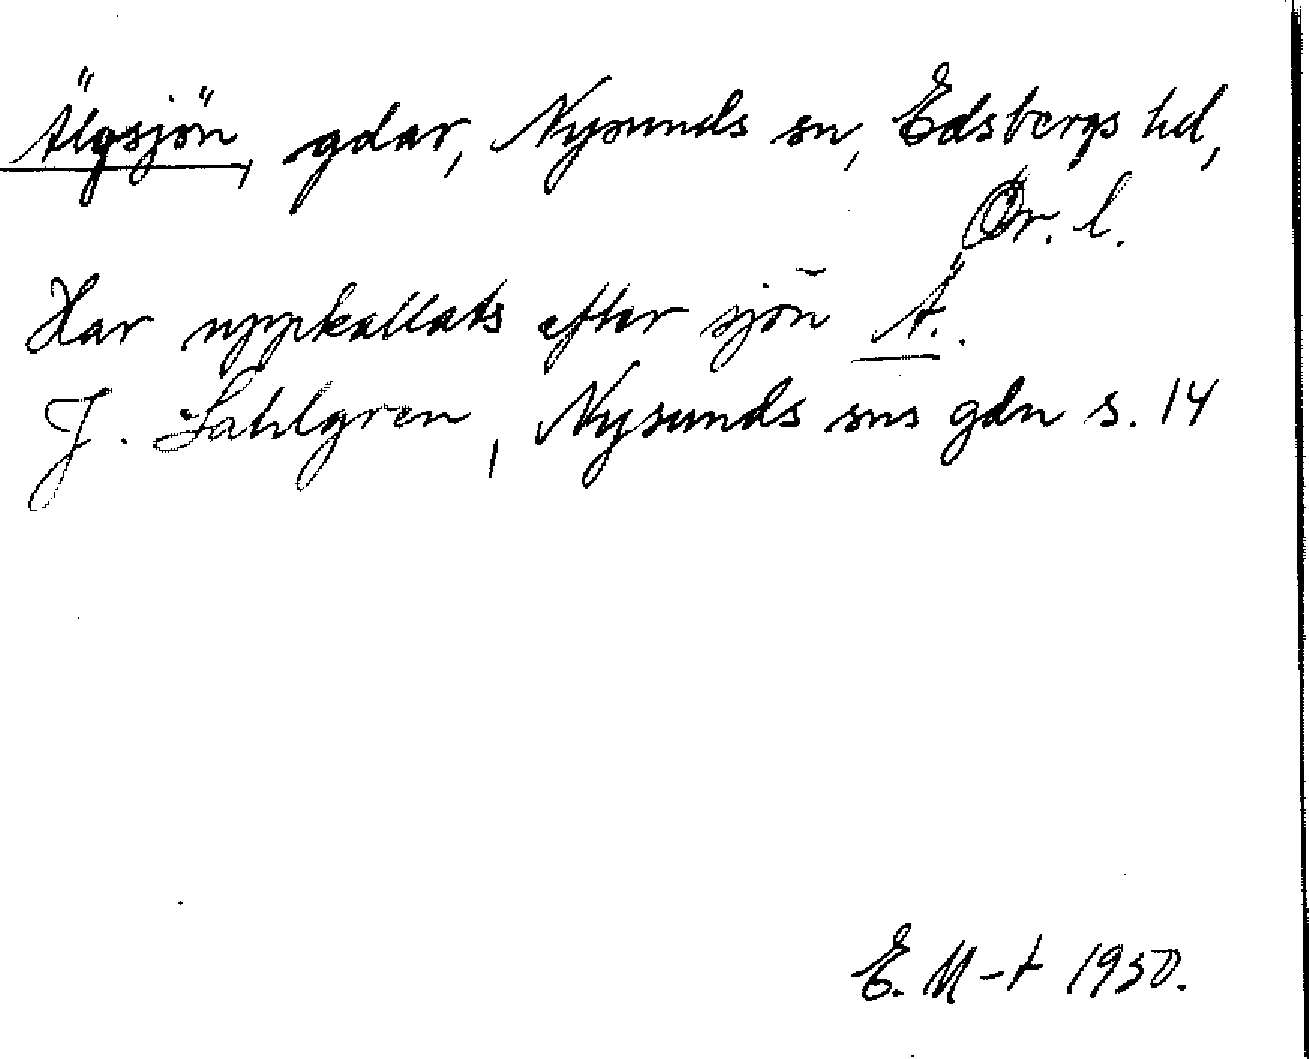 Älgsjön, gdar, Nysunds sn, Edsbergs hd,
Ör. l.
Har uppkallats efter sjön Ä..
J. Sahlgren, Nysunds sns gdn s. 14
E. M-t 1950.